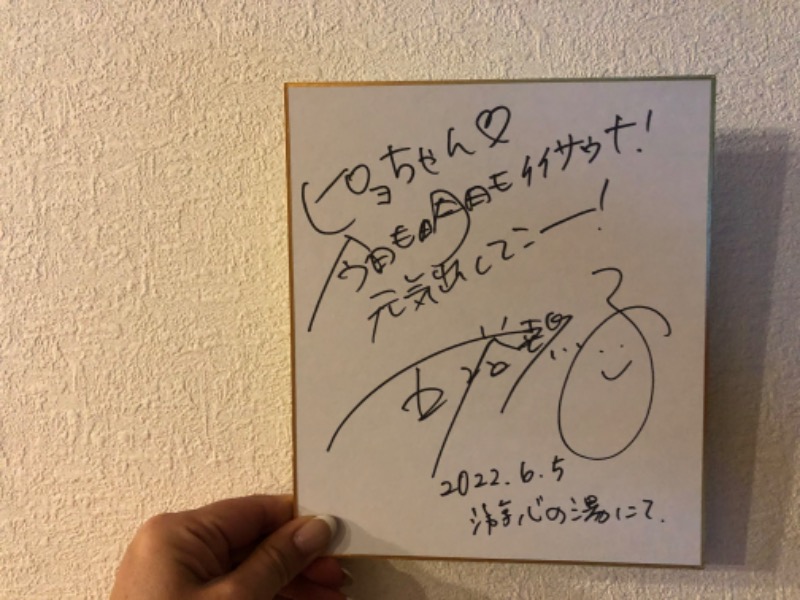 ピョちゃん♡
今日も明日もイイサウナ!
元気出してこー!
2022.6.5
の湯にて.